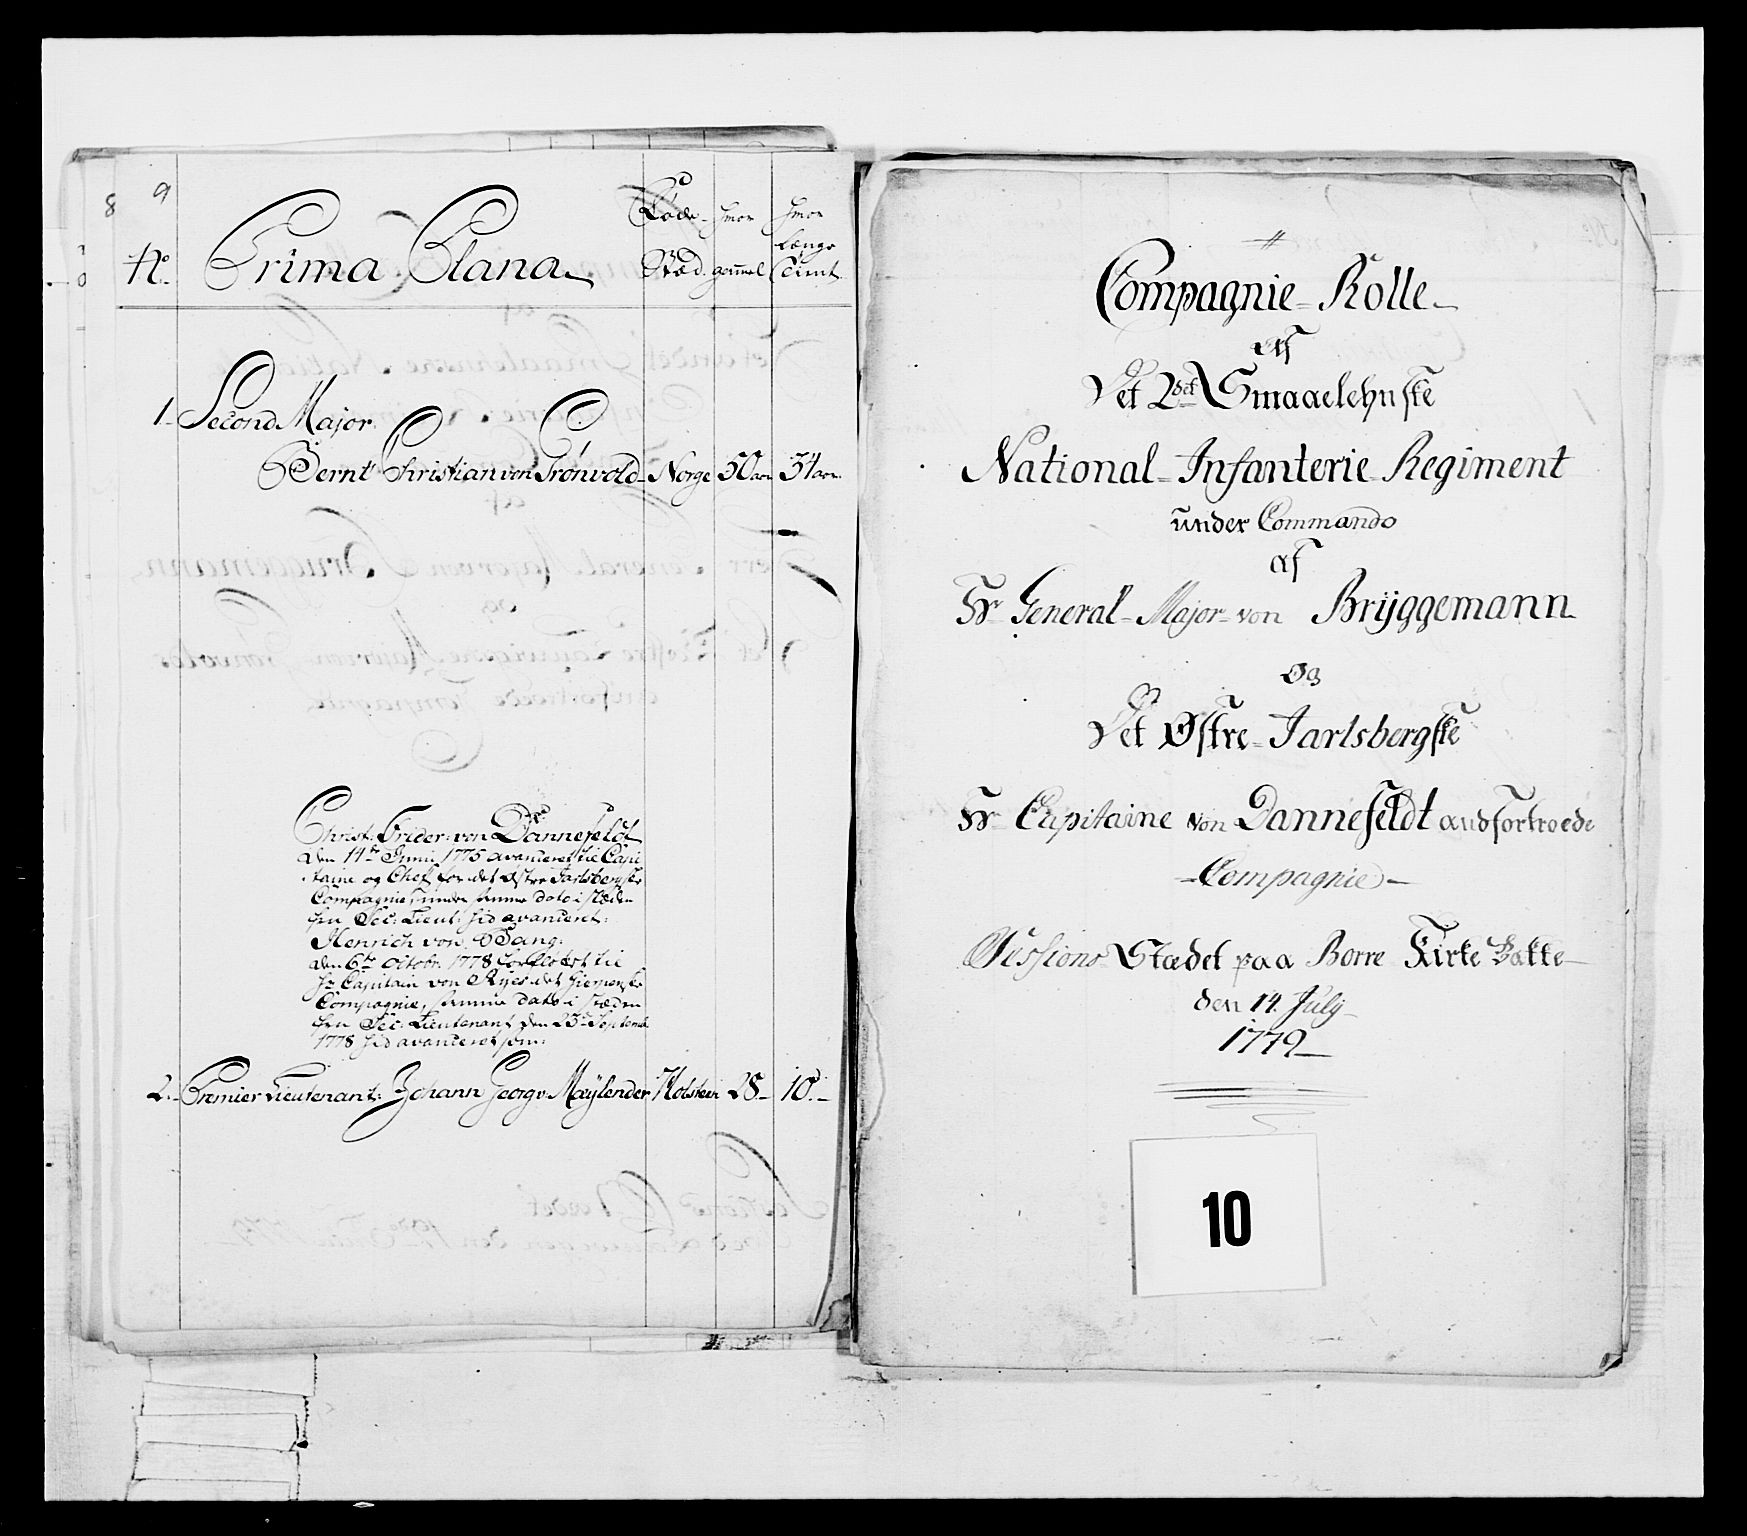 8 9
No. Prima Plana
Føde-
Stæd.
hvor
gammel
hvor
længe
Tient.
1. Second Major
Bernt Christian von Trönvold Norge 50 aar 34 aar
Christ: Frider: von Dannefeldt
den 14de Junii 1775 avanceret til Capi
taine og Chef for det Østre Jarlsbergske
Compagnie, under samme dato i stæden
hru Sec: Lieut: hid avanceret:
Henrich von Bang:
den 6te Octobr. 1778 forflöttet til
Hr Capitain von Ryes det Hiemske
Compagnie, samme dato i stæden
hru Sec: Lieutenant den 23de Septembr
1778 hid avanceret som:
2. Premier Lieutenant: Johann Georg v. Mæylender Holsteen 28 10
Compagnie-Rolle
Af
Det 2det Smaaelehnske
National-Infanterie Regiment
under Commando
af
Hr General-Major-von Brÿggemann
Og
Det Østre-Jarlsbergske
Hr Capitaine von Dannefeldt andfortroede
Compagnie
Sessions Stædet paa Borre Kirke Bakke
den 14. July
1779
10